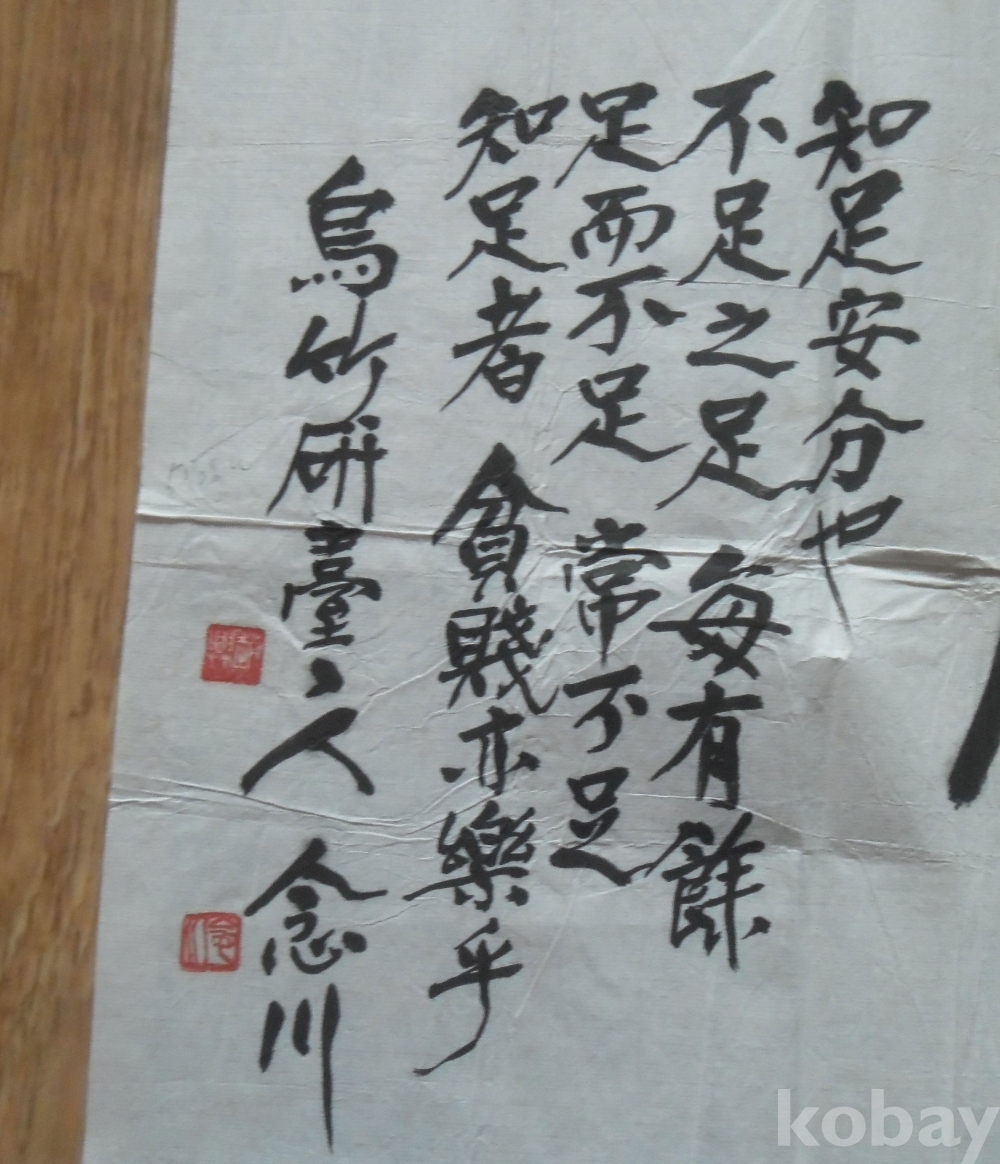 知足安分也
不足之足 每有餘
足而不足 常不足
知足者 貧賤亦樂乎
烏竹硏臺〻人 念川
念川
kobay